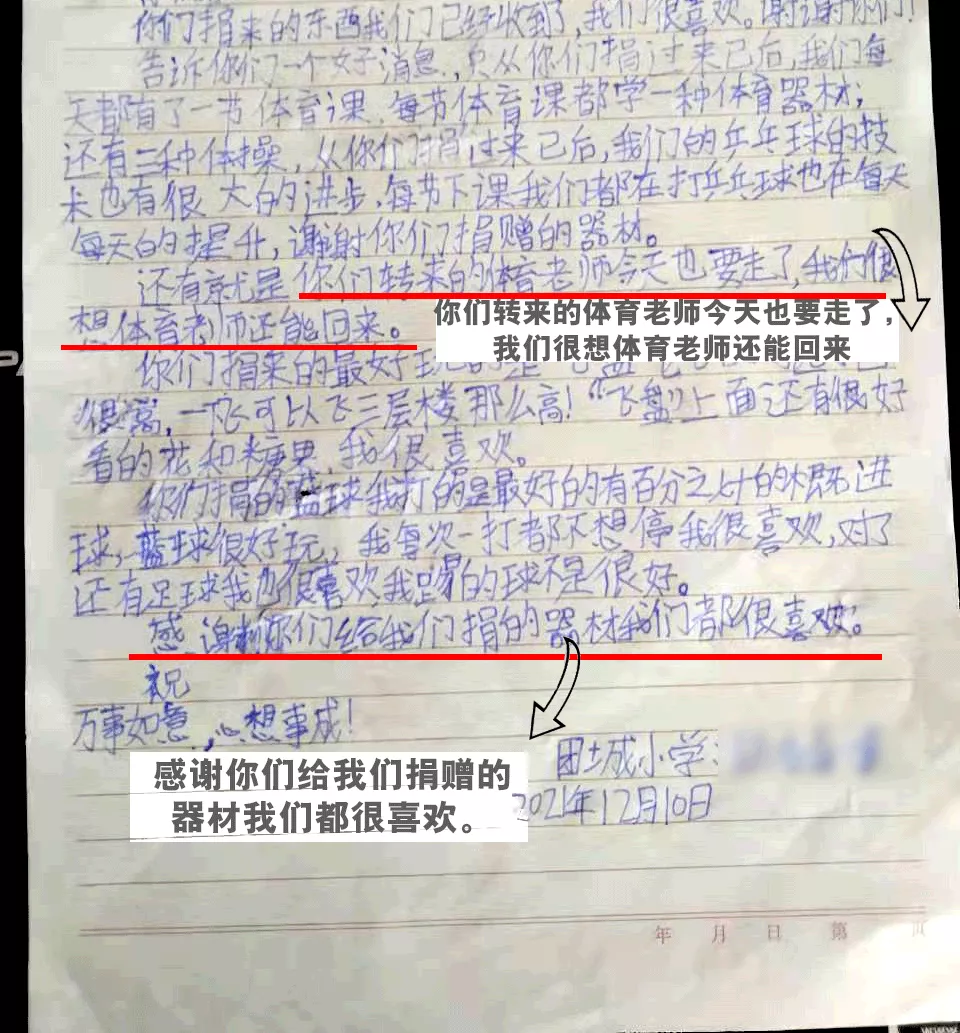 你们捐来的东西我们已经收到了,我们很喜欢。谢谢你们!
告诉你们一个好消息,只从你们捐过来已后,我们每
天都有了一节体育课、每节体育课都学一种体育器材;
还有二种体操,从你们捐过来已后,我们的乒乓球的技
术也有很大的进步,每节下课我们都在打乒乓球也在每天
每天的提升,谢谢你们捐赠的器材。
还有就是你们转来的体育老师今天也要走了,我们很
想体育老师还能回来。
你们转来的体育老师今天也要走了,
我们很想体育老师还能回来
你们捐来的最好玩的是
很高,一飞可以飞三层楼那么高!“飞盘”上面还有很好
看的花和糖果,我很喜欢。
你们捐的蓝球我打的是最好的有百分之 的概 进
球,蓝球很好玩,我每次一打都不想停我很喜欢,对了
还有足球我也很喜欢,我踢的球不是很好。
感谢你们给我们捐的器材我们都很喜欢。
祝
万事如意,心想事成!
感谢你们给我们捐赠的
器材我们都很喜欢。
团城小学:
2021年12月10日
年 月 日 第 页